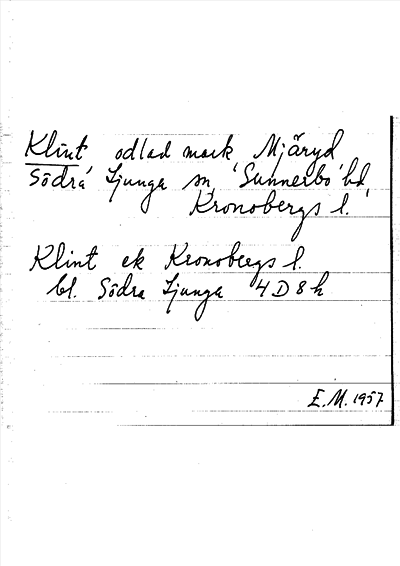 Klint, odlad mark, Mjäryd
Södra Ljunga sn, Sunnerbo hd,
Kronobergs l.
Klint ek Kronobergs l.
bl. Södra Ljunga 4D8h
E.M. 1957